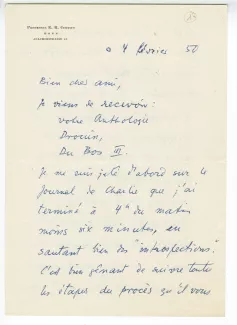 PROFESSOR E. R. CURTIUS
BONN
4 février 50
Bien cher ami,
Je viens de recevoir :
votre Anthologie
Drouin,
Du Bos III.
Je me suis jeté d'abord sur le
Journal de Charlie que j'ai
terminé à 4h du matin
moins six minutes, en
sautant bien des "introspections".
C'est bien gênant de suivre toutes
les étapes du procès qu'il vous